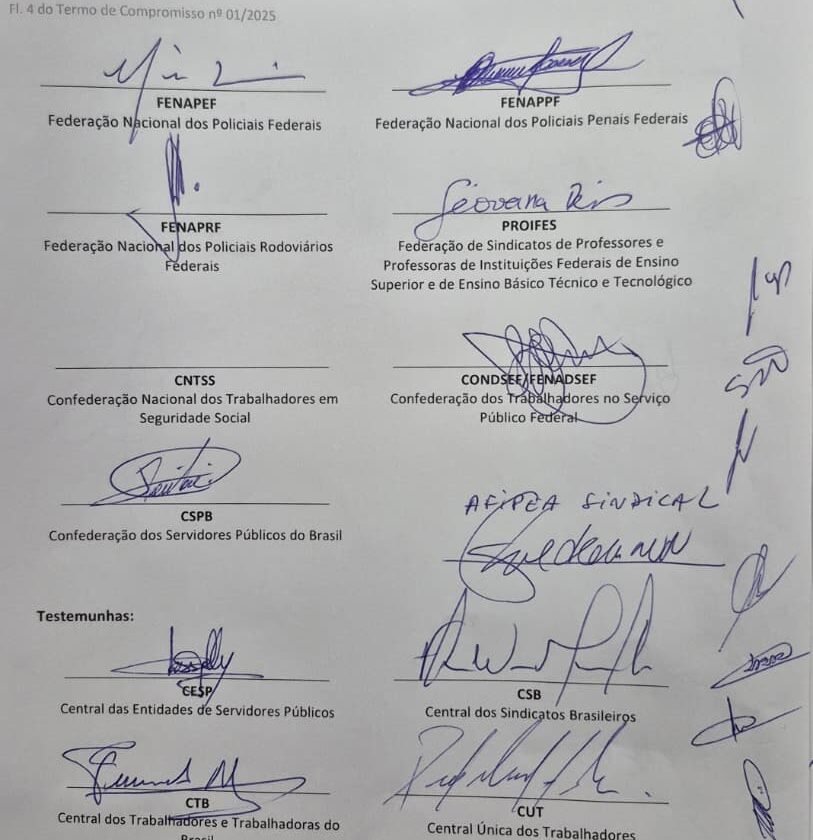 Fl. 4 do Termo de Compromisso nº 01/2025
FENAPEF
Federação Nacional dos Policiais Federais
FENAPPF
Federação Nacional dos Policiais Penais Federais
FENAPRF
Federação Nacional dos Policiais Rodoviários
Federais
Geovana Reis
PROIFES
Federação de Sindicatos de Professores e
Professoras de Instituições Federais de Ensino
Superior e de Ensino Básico Técnico e Tecnológico
CNTSS
Confederação Nacional dos Trabalhadores em
Seguridade Social
CONDSEF/FENADSEF
Confederação dos Trabalhadores no Serviço
Público Federal
CSPB
Confederação dos Servidores Públicos do Brasil
AFIPEA SINDICAL
Testemunhas:
CESP
Central das Entidades de Servidores Públicos
CSB
Central dos Sindicatos Brasileiros
CTB
Central dos Trabalhadores e Trabalhadoras do
Brasil
CUT
Central Única dos Trabalhadores